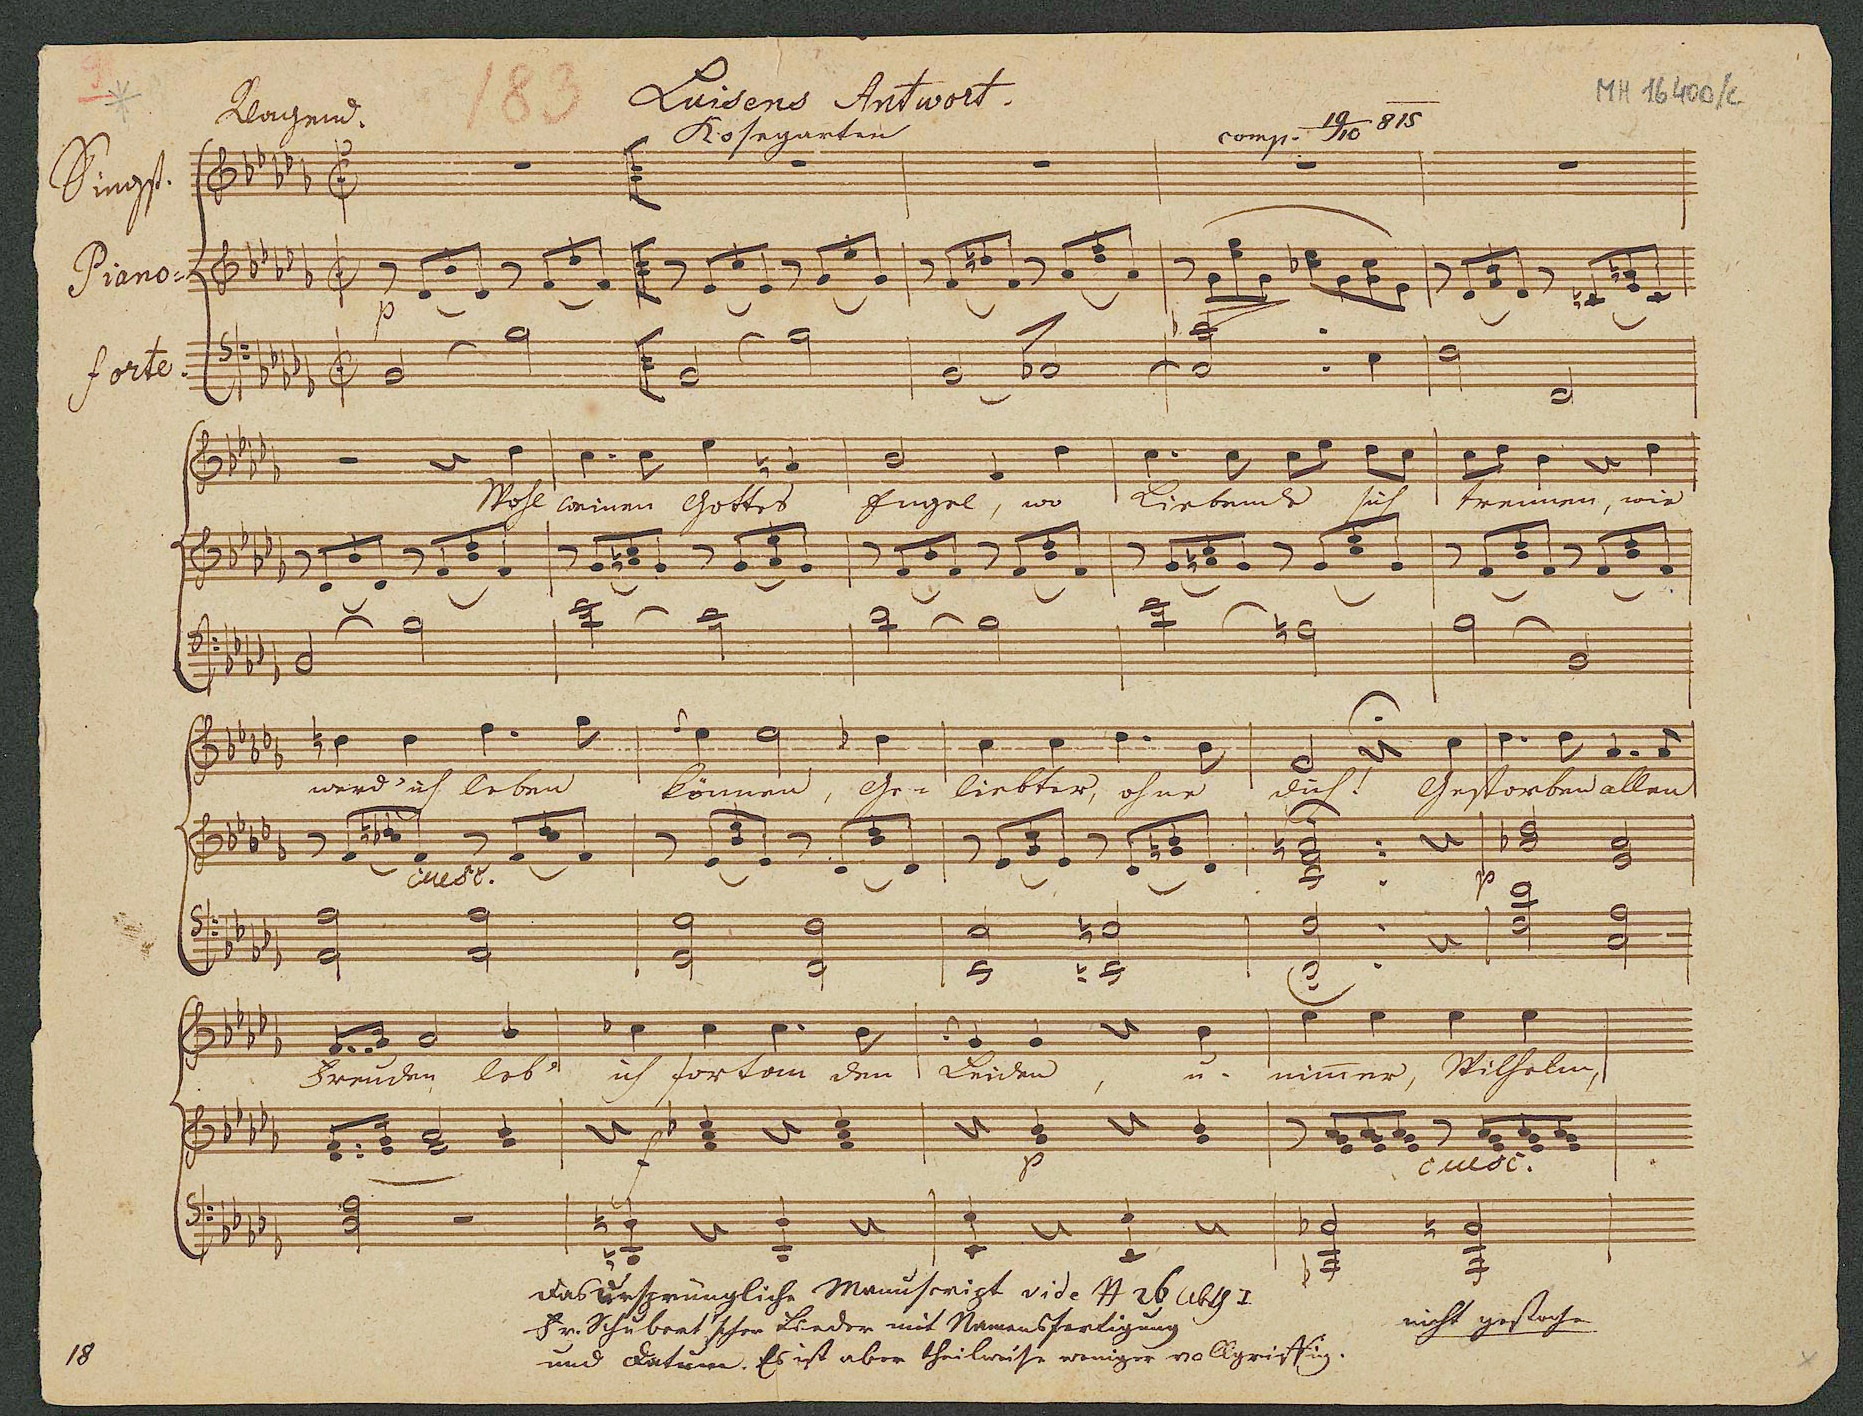 183
Luisens Antwort.
MH 16400/c
Klagend.
Kosegarten
comp. 19/10 815
Singst.
Piano=
p
forte.
Wohl weinen Gottes Engel, wo Liebende sich trennen, wie
werd' ich leben können, Ge- liebter, ohne dich! Gestorben allen
cresc.
p
Freuden leb' ich fortan den Leiden, u. nimmer, Wilhelm,
f p cresc.
Das ursprüngliche Manuscript vide # 26 Abth I
Fr. Schubert'scher Lieder mit Namensfertigung
nicht gestoche
und Datum. Es ist aber theilweise weniger vollgriffig.
18